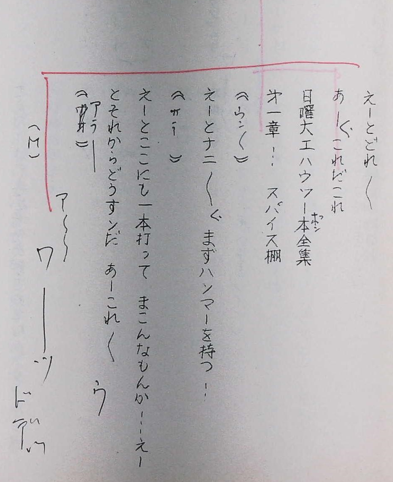 えーとどれ〱
あーぐこれだこれ
日曜大工ハウツー本全集
ホン
第一章… スパイス棚
《ウン〱》
えーとナニ〱ぐ まずハンマーを持つ…
えーとここにも一本打って まこんなもんか……えー
とそれからどうすンだ あーこれ〱 ウ
アラー
ア〜〜〜
(M)
ワーーッ
ドデッ